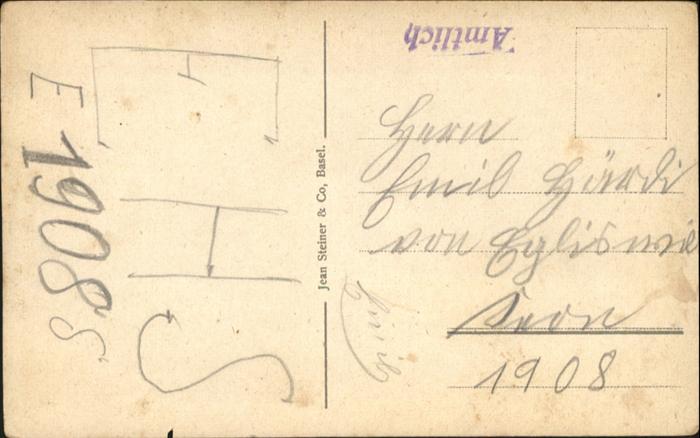 Amtlich
Herrn
Emil Härdi
von Egliswil
Seon
1908
Jean Steiner & Co, Basel.
E 1908
H
S